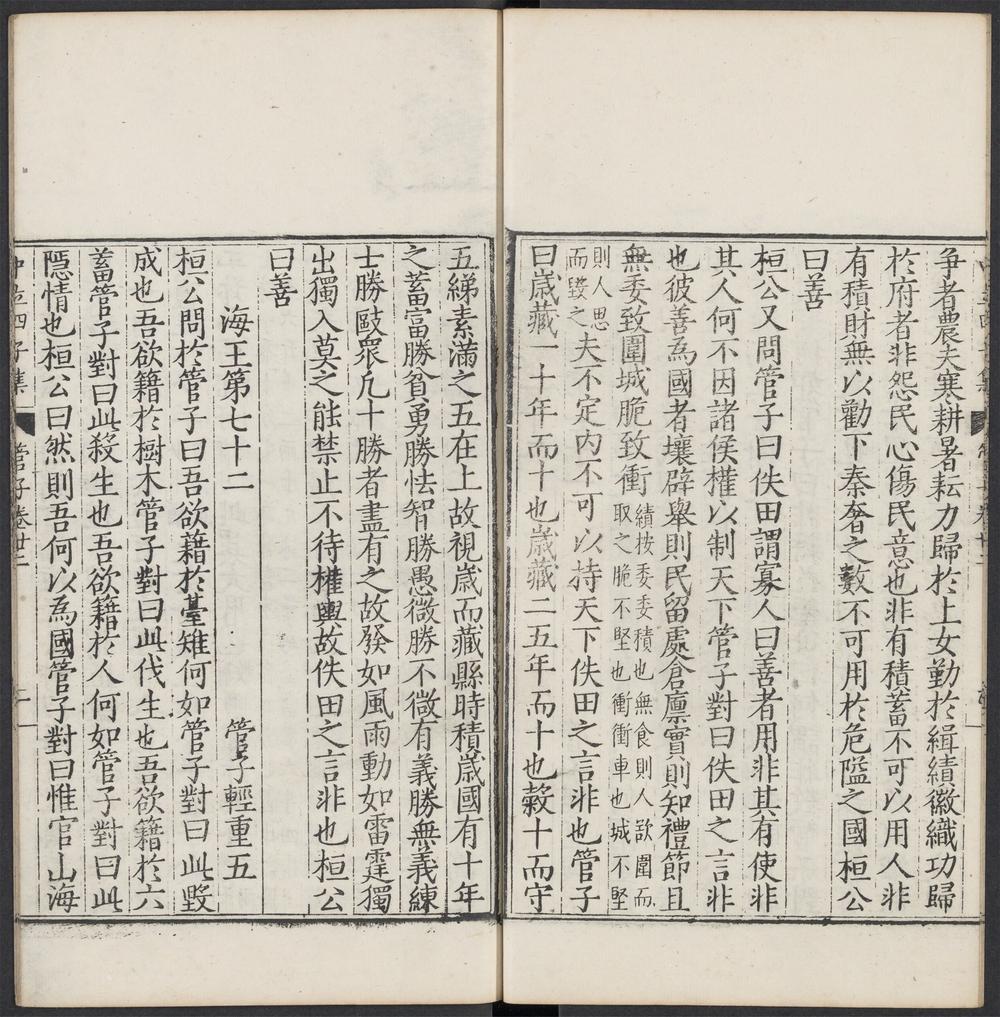 爭者農夫寒耕暑耘力歸於上女勤於緝績徽織功歸
於府者非怨民心傷民意也非有積蓄不可以用人非
有積財無以勸下秦奢之數不可用於危隘之國桓公
曰善
桓公又問管子曰佚田謂寡人曰善者用非其有使非
其人何不因諸侯權以制天下管子對曰佚田之言非
也彼善為國者壤辟舉則民留處倉廩實則知禮節且
無委致圍城脆致衝績按委委積也無食則人欲圍而
取之脆不堅也衝衝車也城不堅
則人思
而毀之夫不定內不可以持天下佚田之言非也管子
曰歲藏一十年而十也歲藏二五年而十也穀十而守
五綈素滿之五在上故視歲而藏縣時積歲國有十年
之蓄富勝貧勇勝怯智勝愚微勝不微有義勝無義練
士勝敺眾凢十勝者盡有之故發如風雨動如雷霆獨
出獨入莫之能禁止不待權輿故佚田之言非也桓公
曰善
海王第七十二 管子輕重五
桓公問於管子曰吾欲籍於臺雉何如管子對曰此毀
成也吾欲籍於樹木管子對曰此伐生也吾欲籍於六
蓄管子對曰此殺生也吾欲籍於人何如管子對曰此
隱情也桓公曰然則吾何以為國管子對曰惟官山海
中立四子集 管子卷廿二